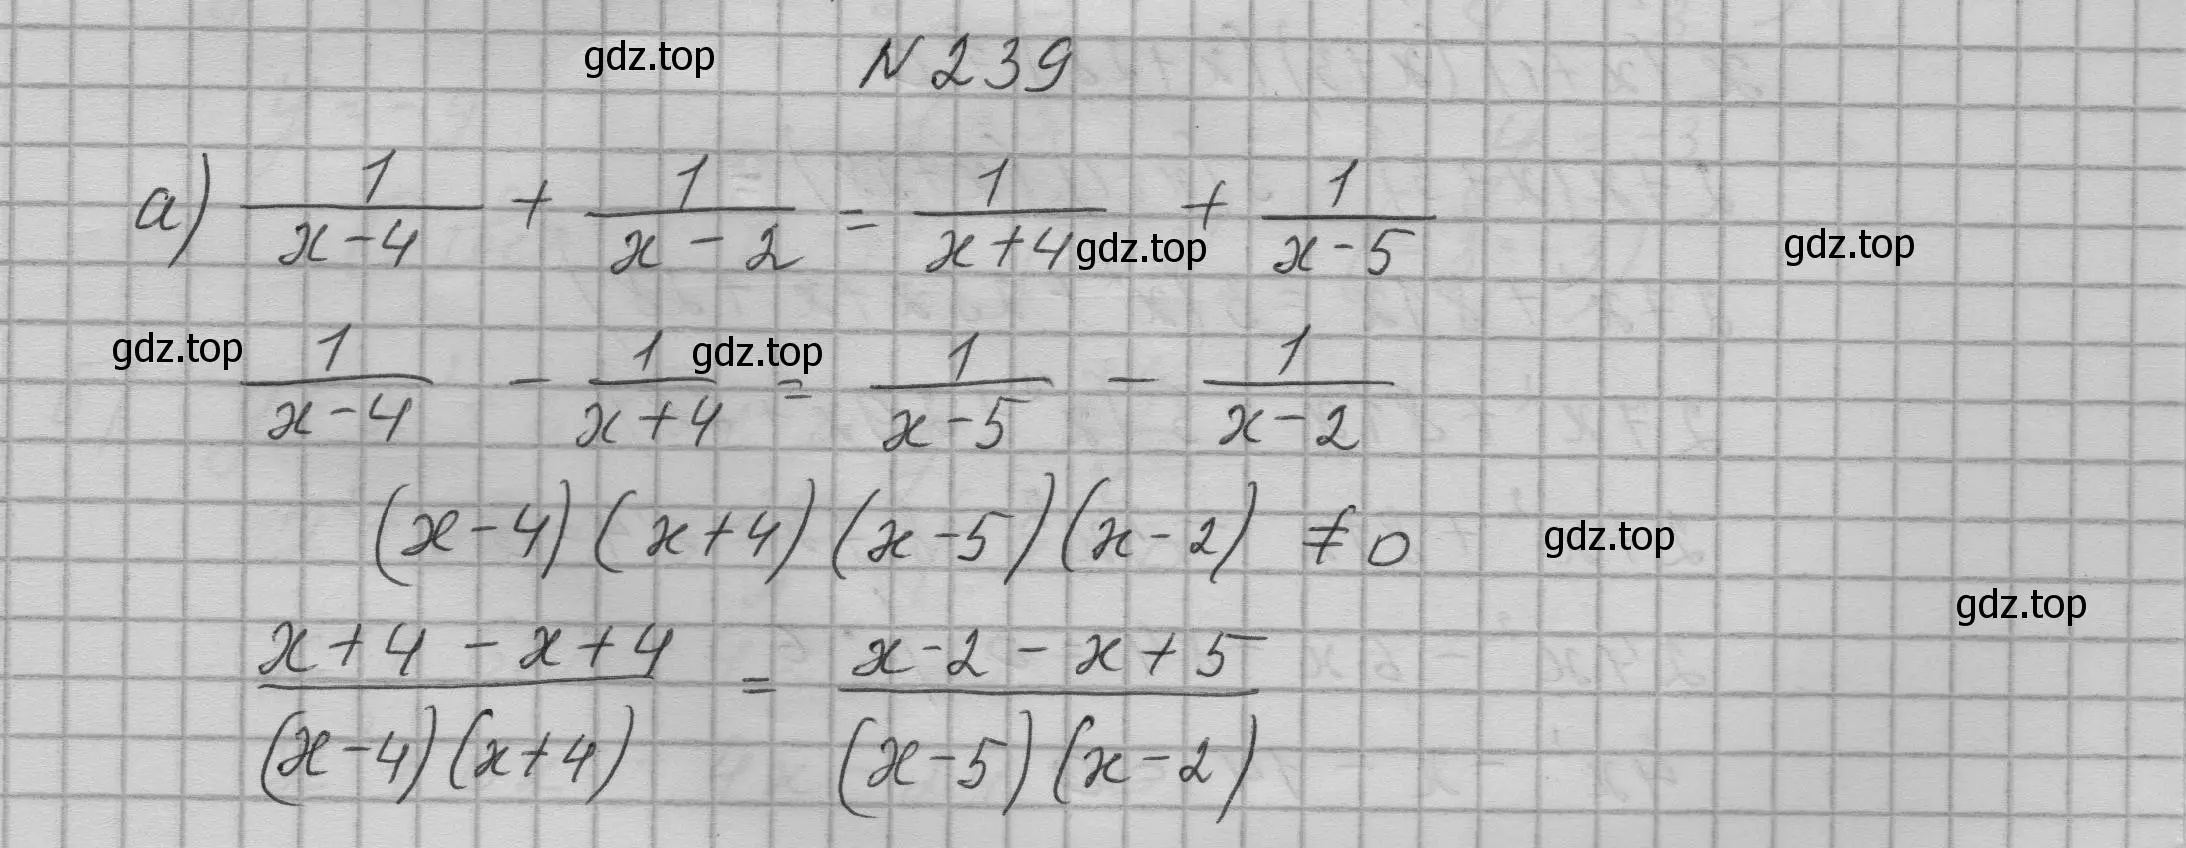 gdz.top N 239
а) 1/(x-4) + 1/(x-2) = 1/(x+4) gdz.top + 1/(x-5) gdz.top
gdz.top 1/(x-4) - 1/(x+4) gdz.top = 1/(x-5) - 1/(x-2)
(x-4)(x+4)(x-5)(x-2) ≠ 0 gdz.top
gdz.top
(x+4-x+4)/((x-4)(x+4)) = (x-2-x+5)/((x-5)(x-2))